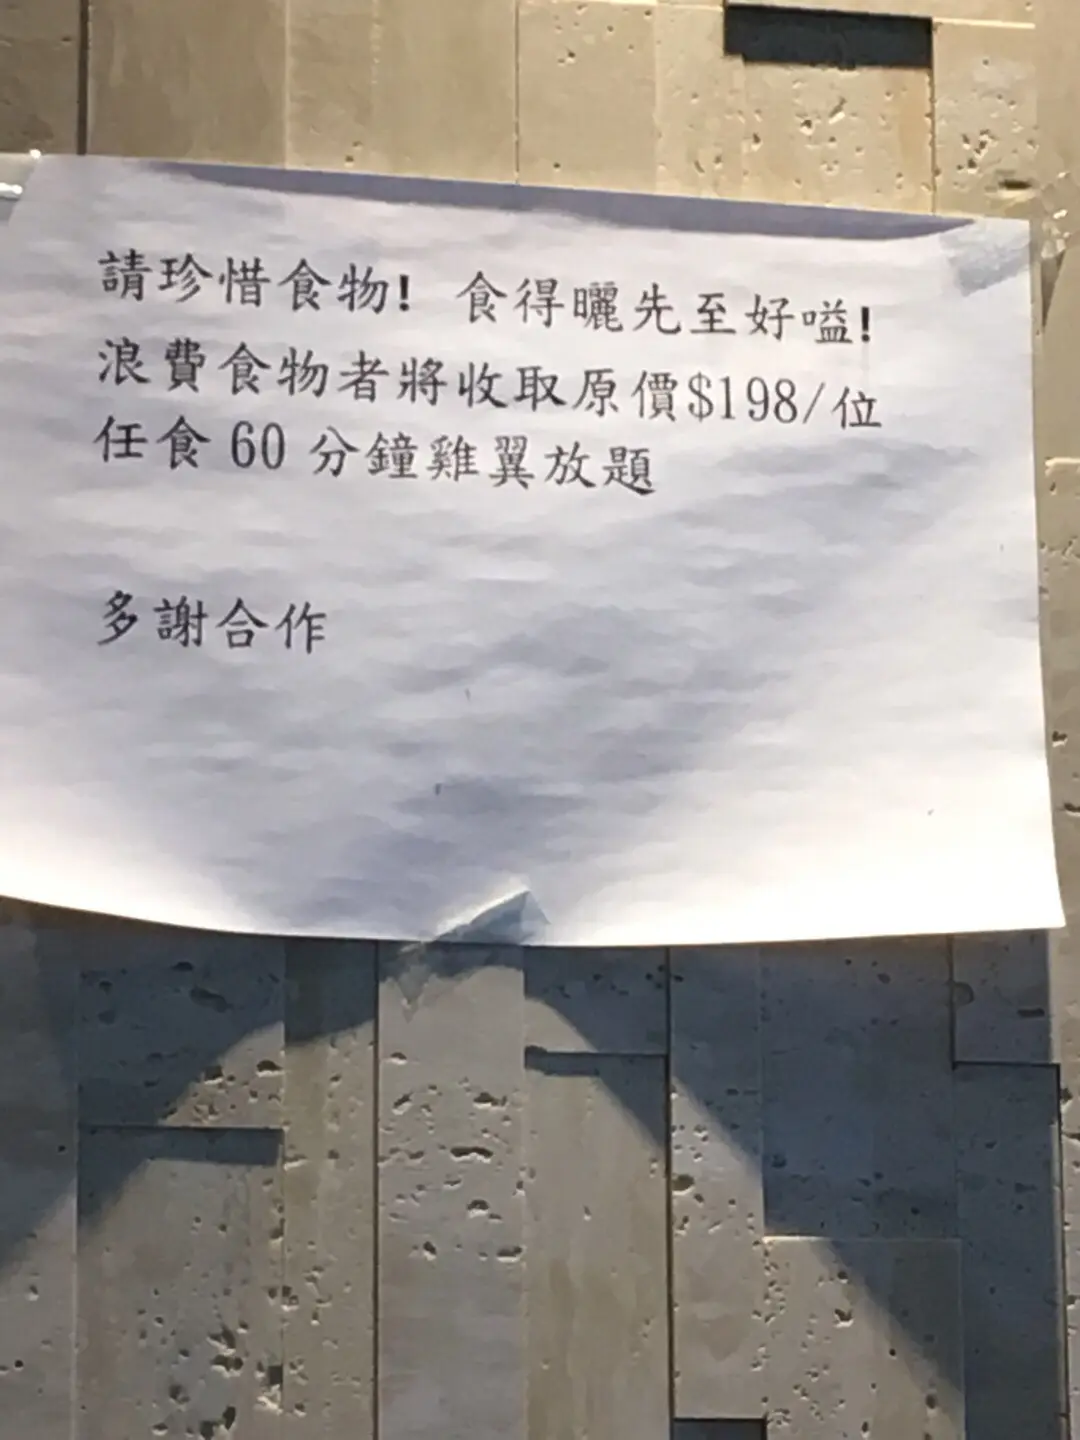 請珍惜食物! 食得曬先至好嗌!
浪費食物者將收取原價$198/位
任食 60 分鐘雞翼放題
多謝合作